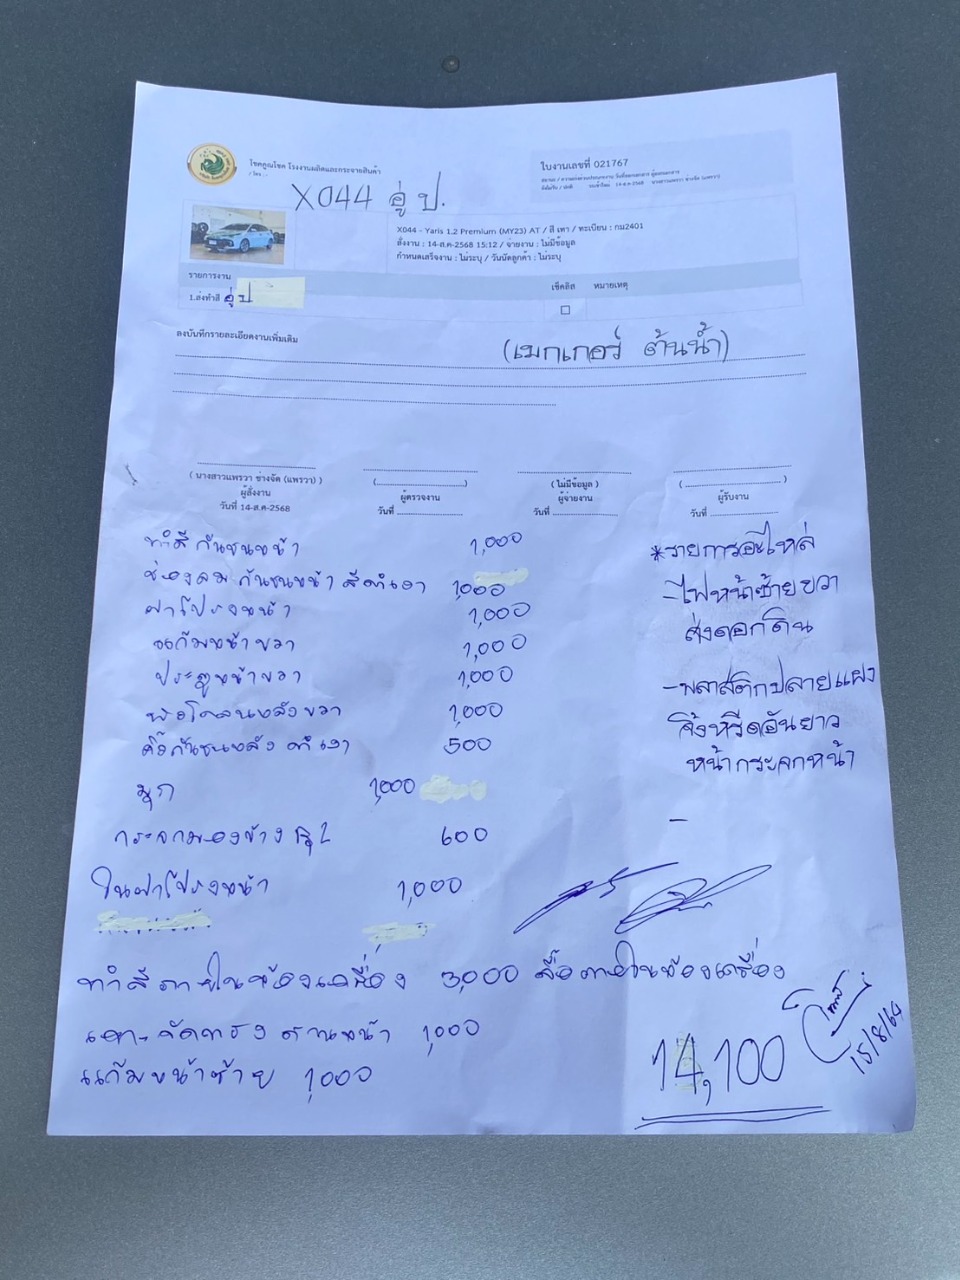 โชคคูณโชค โรงงานผลิตและกระจายสินค้า
ใบงานเลขที่ 021767
X044 อู่ ป.
X044 - Yaris 1.2 Premium (MY23) AT / สี เทา / ทะเบียน : กม2401
สั่งงาน : 14-ส.ค-2568 15:12 / จ่ายงาน : ไม่มีข้อมูล
กำหนดเสร็จงาน : ไม่ระบุ / วันนัดลูกค้า : ไม่ระบุ
รายการงาน เช็คลิส หมายเหตุ
1.ส่งทำสี อู่ ป
ลงบันทึกรายละเอียดงานเพิ่มเติม
(เมกเกอร์ ต้นน้ำ)
( นางสาวแพรวา ช่างจัด (แพรวา) ) (........................) ( ไม่มีข้อมูล ) (........................)
ผู้สั่งงาน ผู้ตรวจงาน ผู้จ่ายงาน ผู้รับงาน
วันที่ 14-ส.ค-2568 วันที่ ................ วันที่ ................ วันที่ ................
ทำสี กันชนหน้า 1,000
ช่องลม กันชนหน้า สีดำเงา 1,000
ฝาโปรงหน้า 1,000
แก้มหน้าขวา 1,000
ประตูหน้าขวา 1,000
หลังขวา 1,000
กันชนหลัง ดำเงา 500
มุก 1,000
กระจกมองข้าง 600
ในฝาโปรงหน้า 1,000
*รายการอะไหล่
-ไฟหน้าซ้ายขวา
ส่งดอกดิน
-พลาสติกปลายแผง
จิ้งหรีดอันยาว
หน้ากระจกหน้า
-
ทำสีภายในห้องเครื่อง 3,000 ภายในห้องเครื่อง
เคาะจัดทรง คานหน้า 1,000
แก้มหน้าซ้าย 1,000
14,100
15/8/64